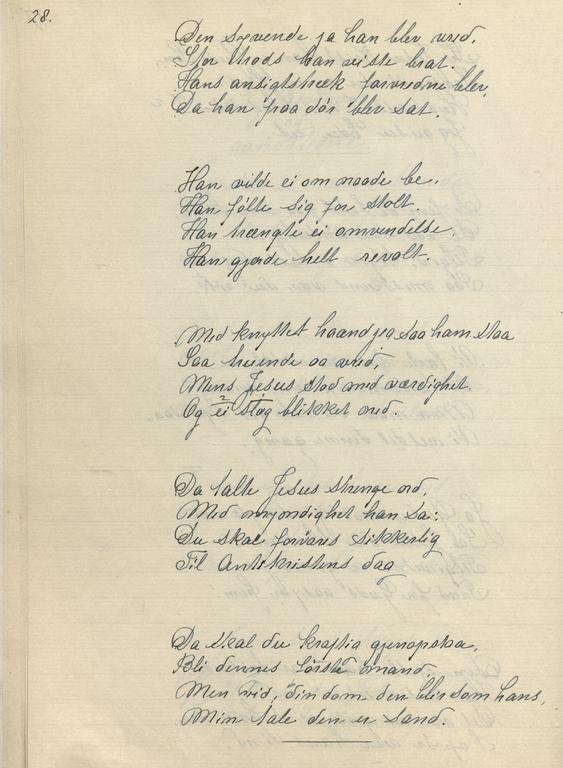 28.
Den syvende ja han blev vred.
Stor trods han viste brat.
Hans ansigtstræk forvredne blev,
Da han paa dør blev sat.
Han vilde ei om naade be.
Han følte sig for stolt.
Han trængte ei omvendelse.
Han gjorde helt revolt.
Med knyttet haand jeg saa ham staa
Saa truende og vred,
Mens Jesus stod med værdighet
Og ei slog blikket ned.
Da talte Jesus strenge ord,
Med myndighet han sa:
Du skal forvares sikkerlig
Til Antikristens dag
Da skal du kraftig gjenopstaa,
Bli dennes første mand.
Men vid, din dom den blir som hans,
Min tale den er sand.